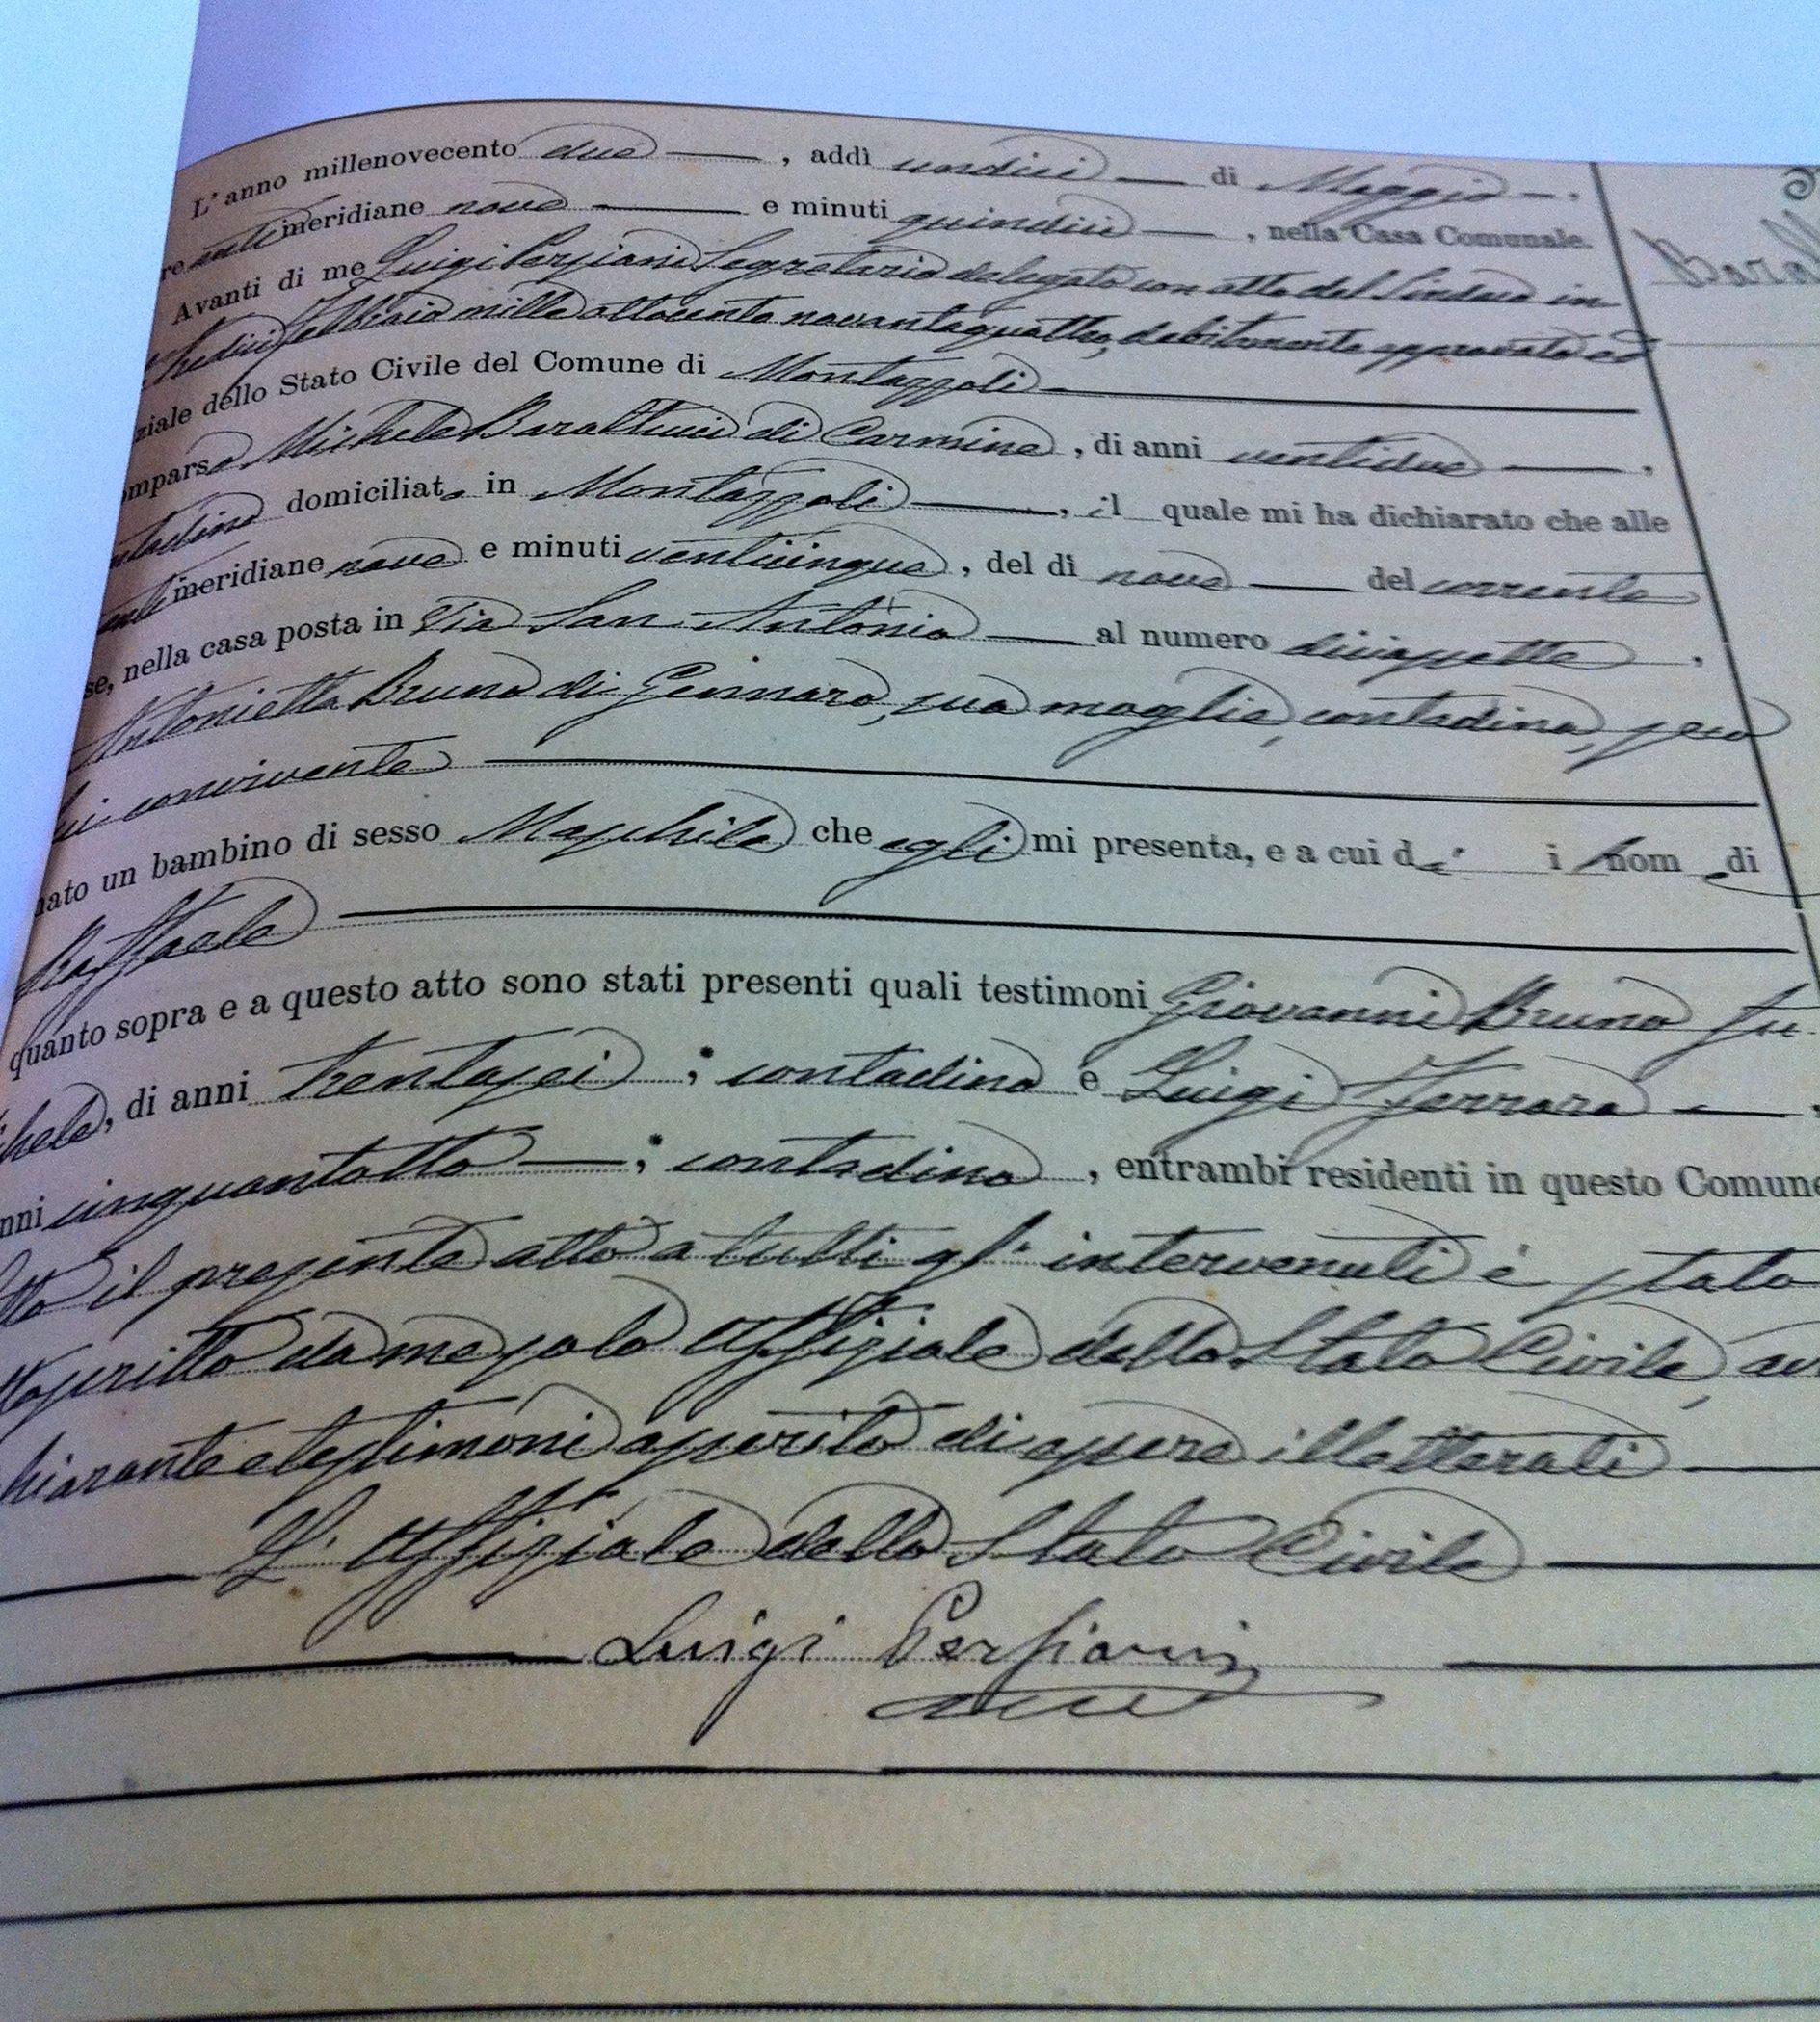 L'anno millenovecento due, addì undici di Maggio.
re antimeridiane nove e minuti quindici, nella Casa Comunale.
Avanti di me Luigi Persiani Segretario delegato con atto del Sindaco in
tredici Febbraio mille ottocento novantaquattro, debitamente approvato ed
ziale dello Stato Civile del Comune di Montazzoli
omparso Michele Barattucci di Carmine, di anni ventidue.
ntadino domiciliato in Montazzoli, il quale mi ha dichiarato che alle
antimeridiane nove e minuti venticinque, del dì nove del corrente
se, nella casa posta in Via San Antonio al numero diciassette.
Antonietta Bruno di Gennaro, sua moglie, contadina, seco
lui convivente
nato un bambino di sesso Maschile che egli mi presenta, e a cui dà i nom di
Raffaele
quanto sopra e a questo atto sono stati presenti quali testimoni Giovanni Bruno fu
chele, di anni trentasei; contadino e Luigi Ferrara
nni cinquantotto; contadino, entrambi residenti in questo Comune
tto il presente atto a tutti gl'intervenuti è stato
ttoscritto da me solo Uffiziale dello Stato Civile,
hiarante e testimoni asserito di essere illetterati
L'Uffiziale dello Stato Civile
Luigi Persiani